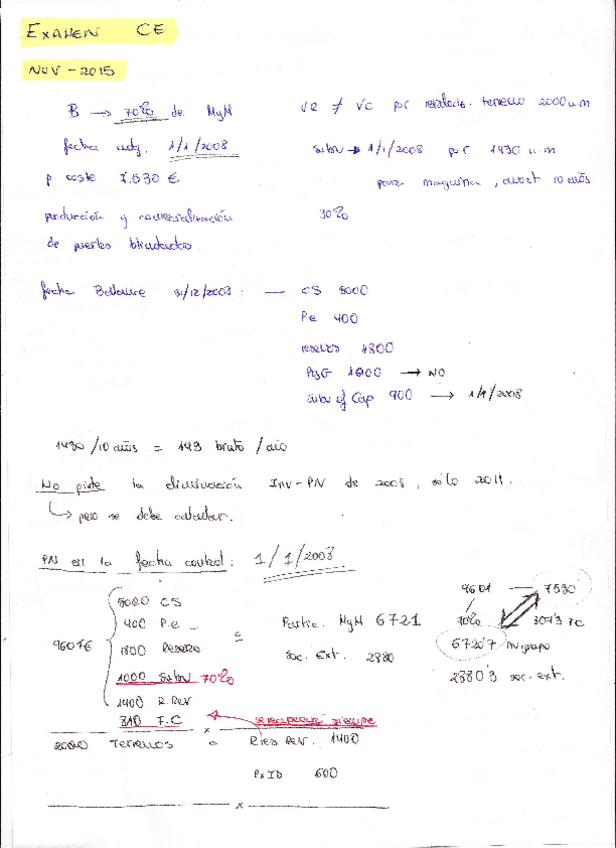 EXAMEN CE
NOV - 2015
B → 70% de MyM
fecha adq. 1/1/2008
p coste 7.530 €
producción y comercialización
de puertas blindadas
VR ≠ VC por terreno 2000 u.m
Subv → 1/1/2008 por 1430 u.m
para maquina, amort 10 años
30%
fecha Balance 31/12/2008: — CS 5000
Pe 400
reservas 1800
PyG 1000 → NO
Subv of Cap 900 → 1/1/2008
1430/10 años = 143 bruto/año
No pide la eliminación INV-PN de 2008, sólo 2011.
↳ pero se debe calcular.
PN en la fecha control: 1/1/2008
9601€
5000 CS
400 P.e
1800 Reserva
1000 Subv 70%
1400 R. Rev
2000 Terrenos a Rvas Rev. 1400
PxID 600
= Partic. MyM 6721
Soc. Ext. 2880
9601 — 7530
70%
6720'7 grupo
2880'3 soc. ext.
x